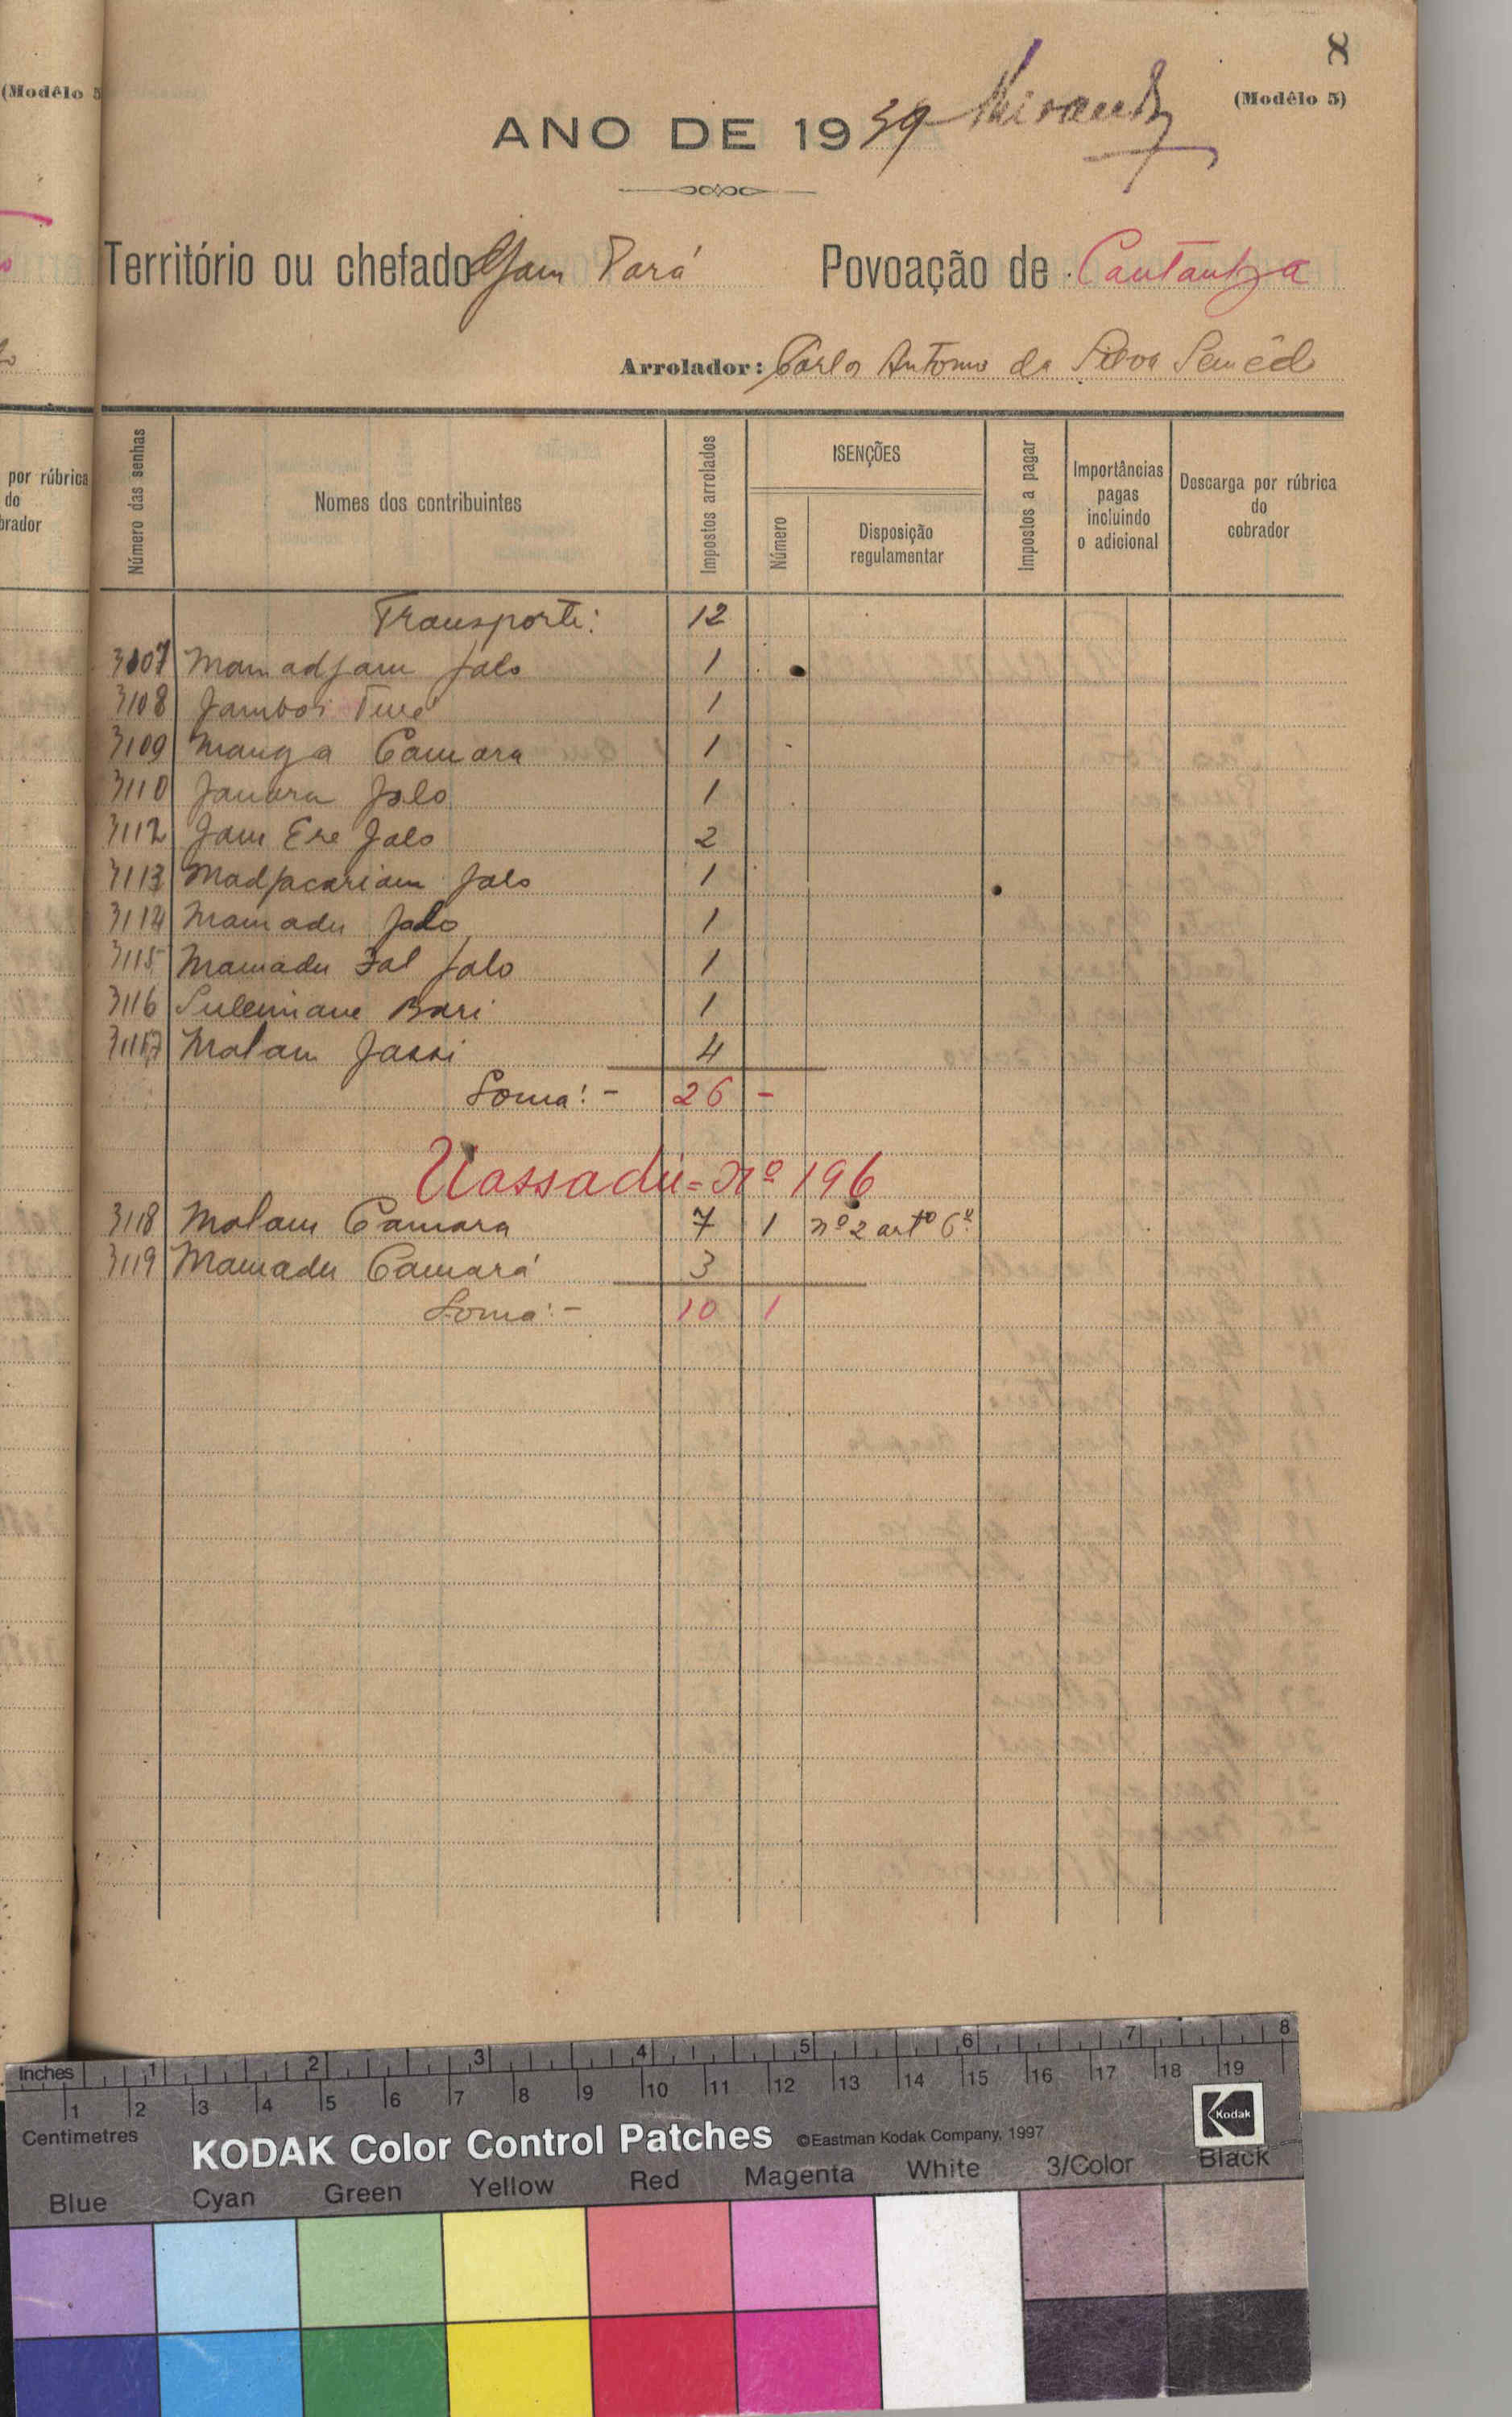 8
(Modêlo 5)
(Modêlo 5)
ANO DE 1939
Território ou chefado Gam Pará Povoação de Cantantza
Arrolador: Carlos Antonio da Silva Semêdo
por rúbrica
do
brador
Número das senhas
Nomes dos contribuintes
Impostos arrolados
ISENÇÕES
Número
Disposição
regulamentar
Impostos a pagar
Importâncias
pagas
incluindo
o adicional
Descarga por rúbrica
do
cobrador
Transporte: 12
3107 Mamadjam Jalo 1
3108 Jambos Ture 1
3109 Manga Camara 1
3110 Janara Jalo 1
3112 Jam Ere Jalo 2
3113 Madjacariam Jalo 1
3114 Mamadu Jalo 1
3115 Mamadu Sal Jalo 1
3116 Suleimane Bari 1
3117 Malam Jassi 4
Soma:- 26 -
Uassadu = nº 196
3118 Malam Camara 7 1 nº 2 artº 6º
3119 Mamadu Camará 3
Soma:- 10 1
Inches 1 2 3 4 5 6 7 8
1 2 3 4 5 6 7 8 9 10 11 12 13 14 15 16 17 18 19
Centimetres
KODAK Color Control Patches ©Eastman Kodak Company, 1997 Kodak
Blue Cyan Green Yellow Red Magenta White 3/Color Black